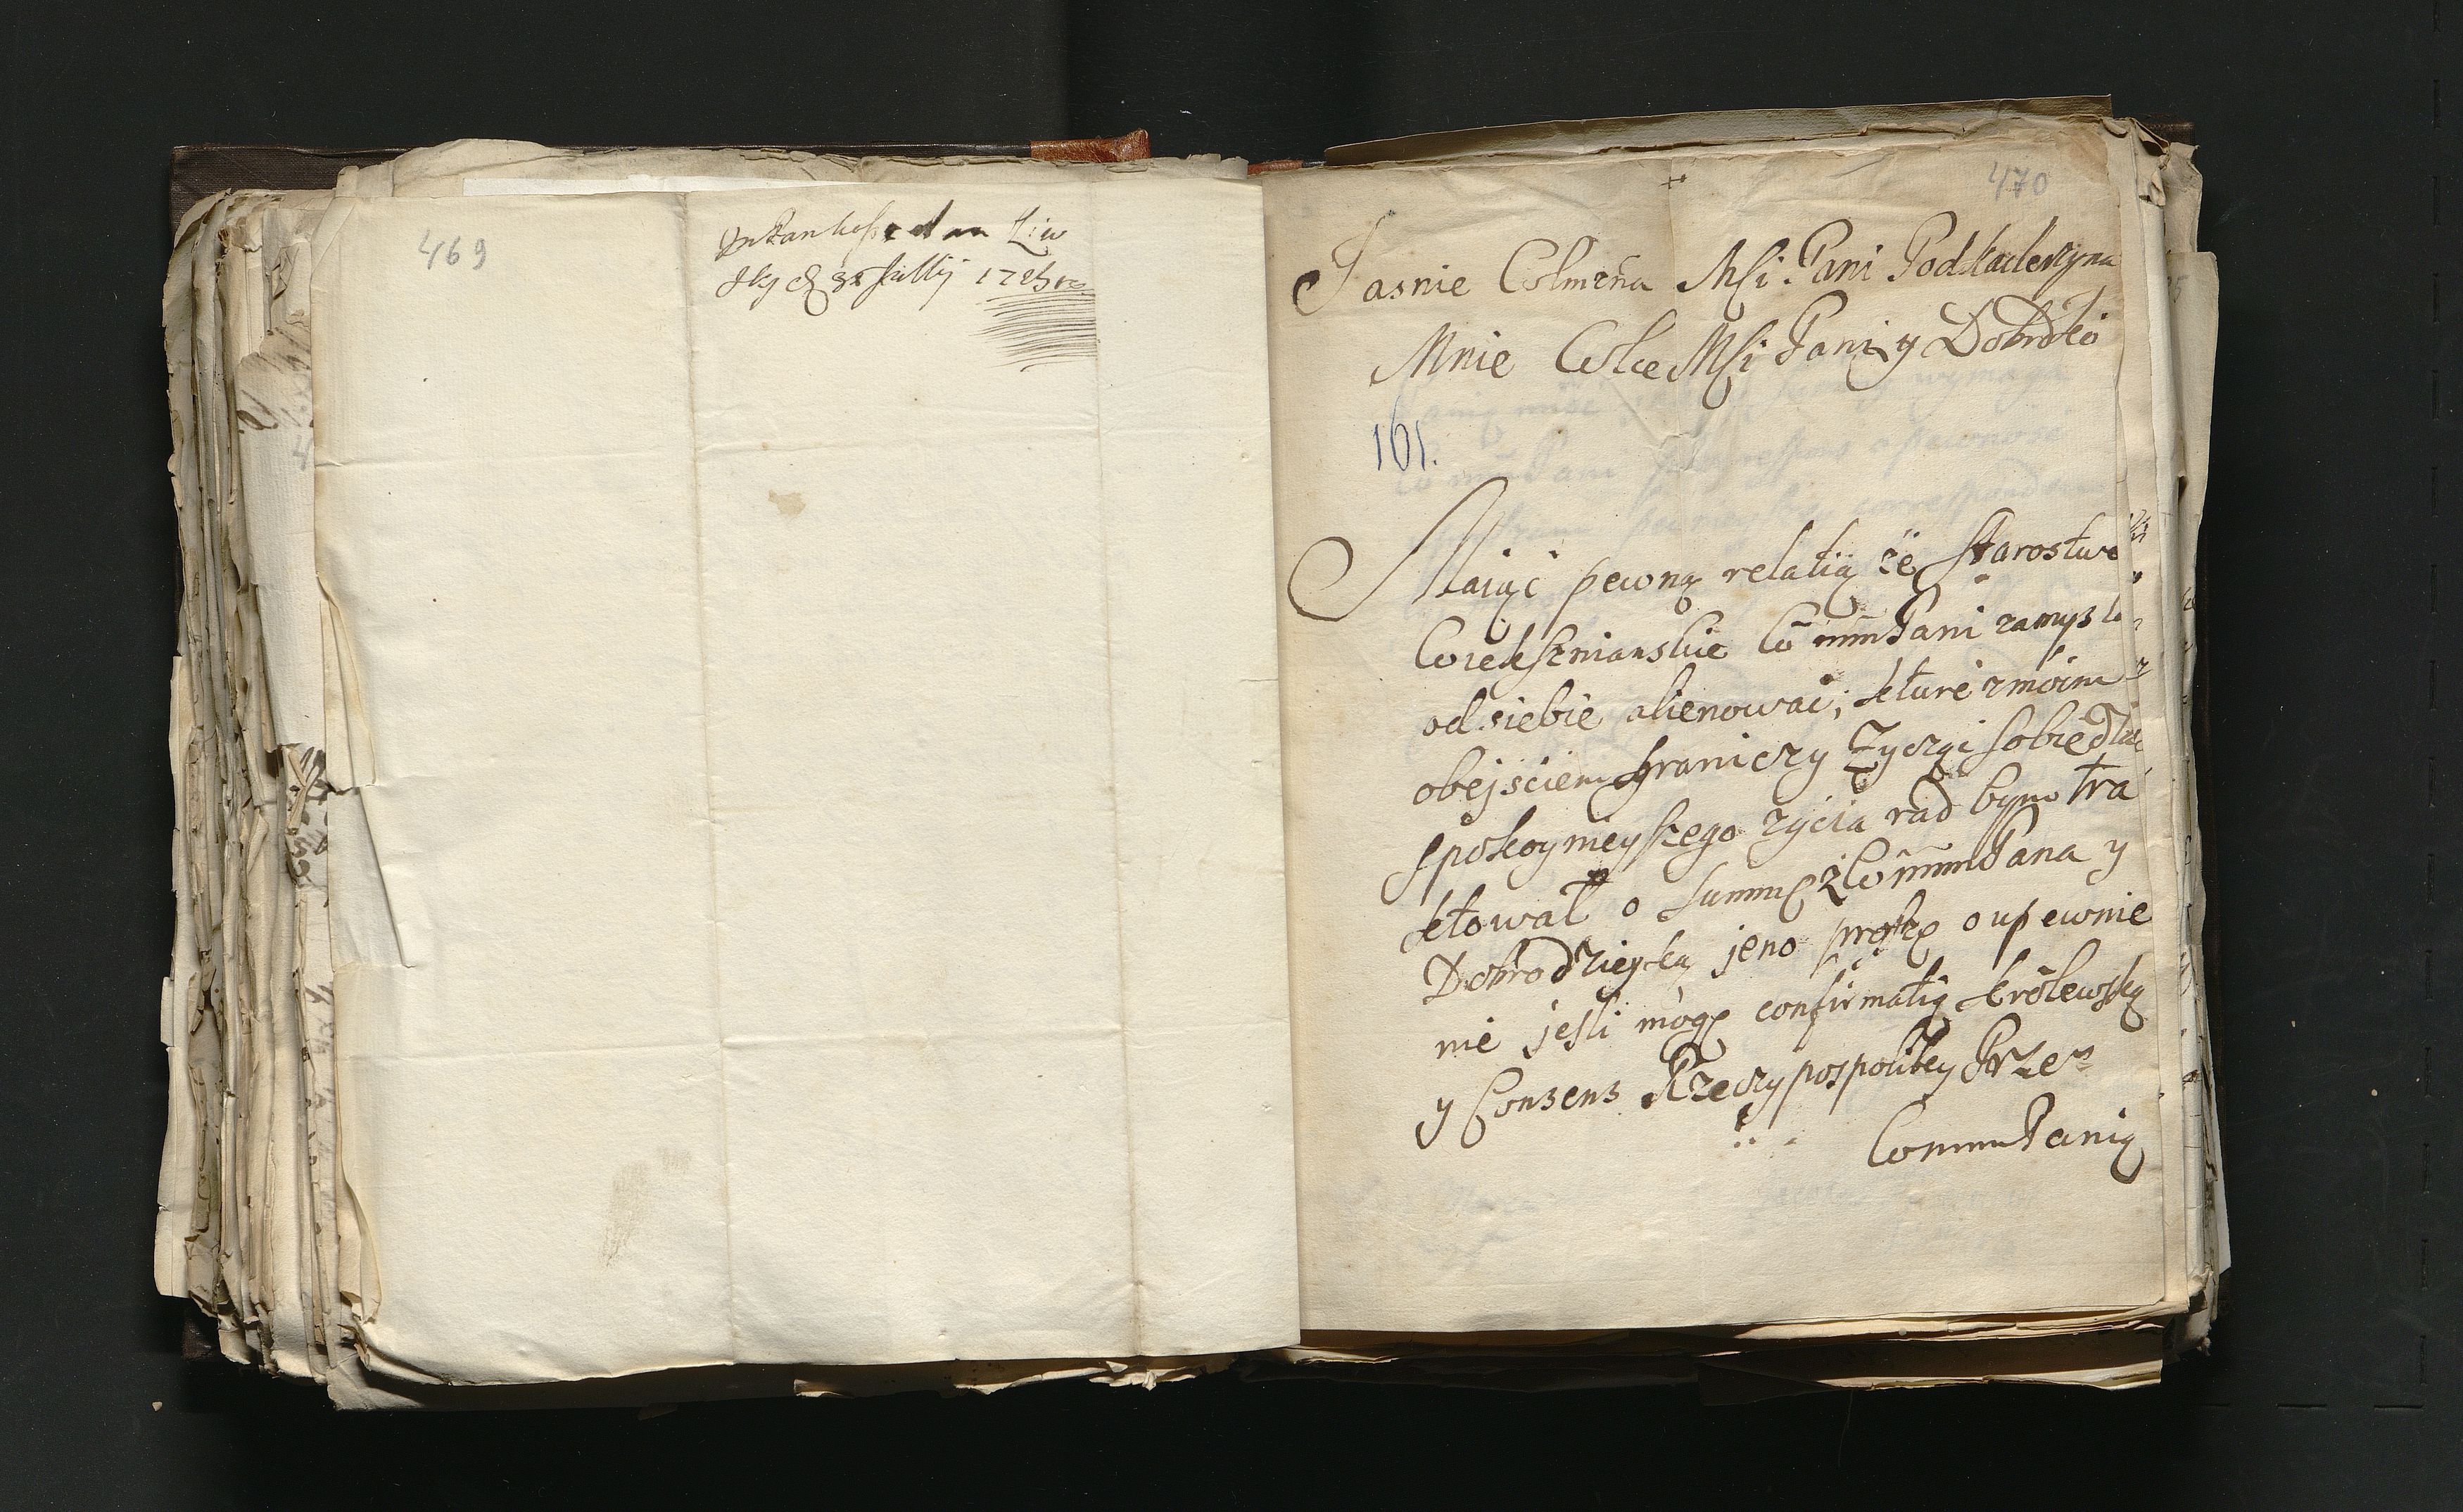 469
31 Julÿ 1725
470
Jasnie Wlmżna Msci Pani Podskarbyna
Mnie Wlce Msci Pani y Dobrdko
161.
Maiąc pewną relatią że Starostwo
Wm mm Pani zamysla
od siebie alienowac, kture z moim
obejsciem graniczy Życząc sobie dla
spokoynieyszego życia rad bym tra
ktował o Summę z Wm mm Pana y
Dobrodzieyką jeno proszę o upewnie
nie jesli mogę confirmatią krolewską
y Consens Rzeczypospolitey Przez
Wmm Panią